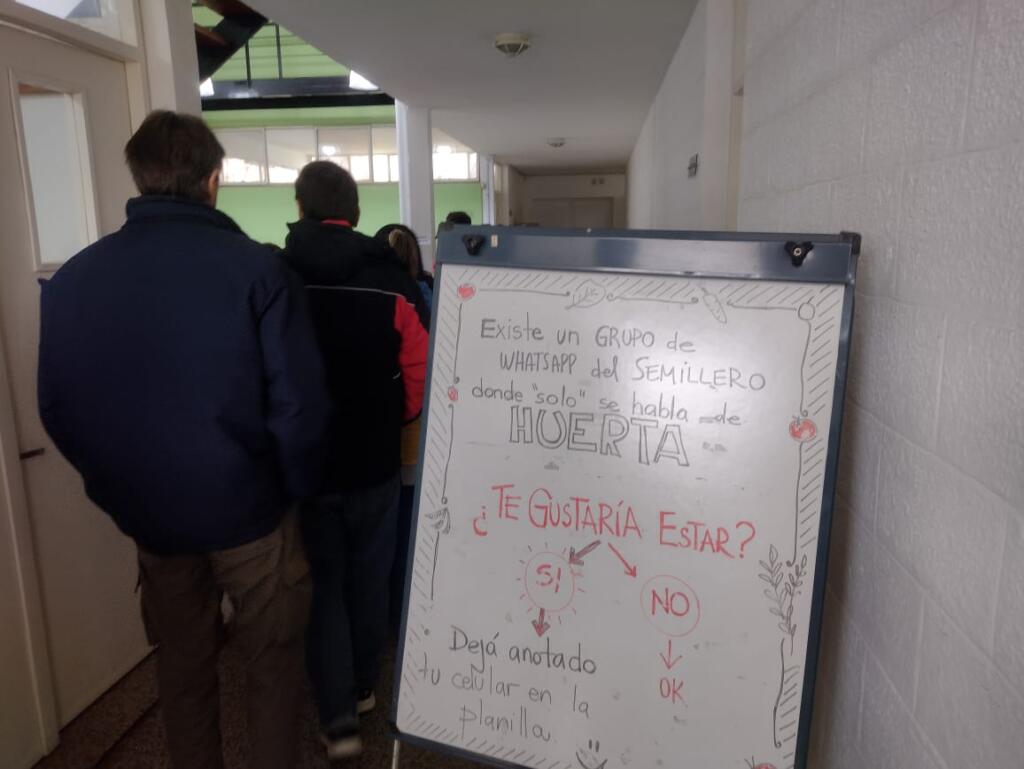 Existe un GRUPO de
WHATSAPP del SEMILLERO
donde "solo" se habla de
HUERTA
¿TE GUSTARÍA ESTAR?
SI
NO
Dejá anotado
tu celular en la
planilla.
OK